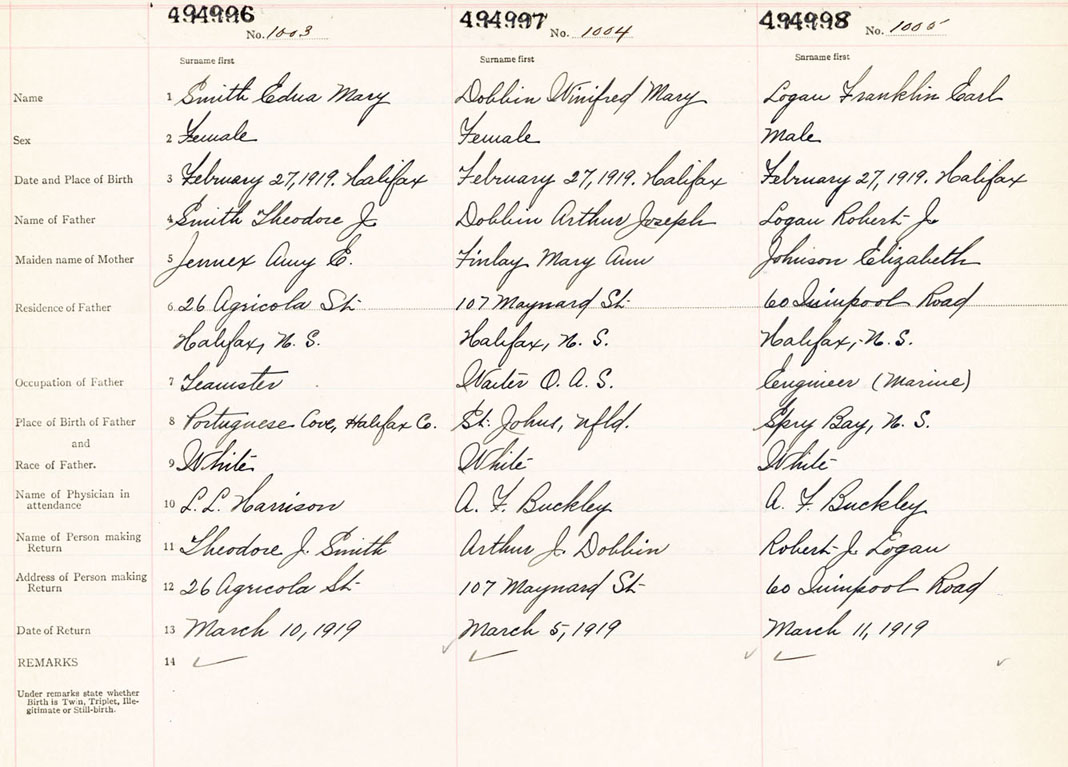 494996 494997 494998
No. 1003 No. 1004 No. 1005
Surname first Surname first Surname first
Name 1 Smith Edna Mary Dobbin Winifred Mary Logan Franklin Earl
Sex 2 Female Female Male
Date and Place of Birth 3 February 27, 1919. Halifax February 27, 1919. Halifax February 27, 1919. Halifax
Name of Father 4 Smith Theodore J. Dobbin Arthur Joseph Logan Robert J.
Maiden name of Mother 5 Jennex Amy E. Finlay Mary Ann Johnson Elizabeth
Residence of Father 6 26 Agricola St. 107 Maynard St. 60 Quinpool Road
Halifax, N. S. Halifax, N. S. Halifax, N. S.
Occupation of Father 7 Teamster Waiter O. A. S. Engineer (Marine)
Place of Birth of Father 8 Portuguese Cove, Halifax Co. St. Johns, Nfld. Spry Bay, N. S.
and
Race of Father. 9 White White White
Name of Physician in
attendance 10 L. L. Harrison A. F. Buckley A. F. Buckley
Name of Person making
Return 11 Theodore J. Smith Arthur J. Dobbin Robert J. Logan
Address of Person making
Return 12 26 Agricola St. 107 Maynard St. 60 Quinpool Road
Date of Return 13 March 10, 1919 March 5, 1919 March 11, 1919
REMARKS 14
Under remarks state whether
Birth is Twin, Triplet, Ille-
gitimate or Still-birth.